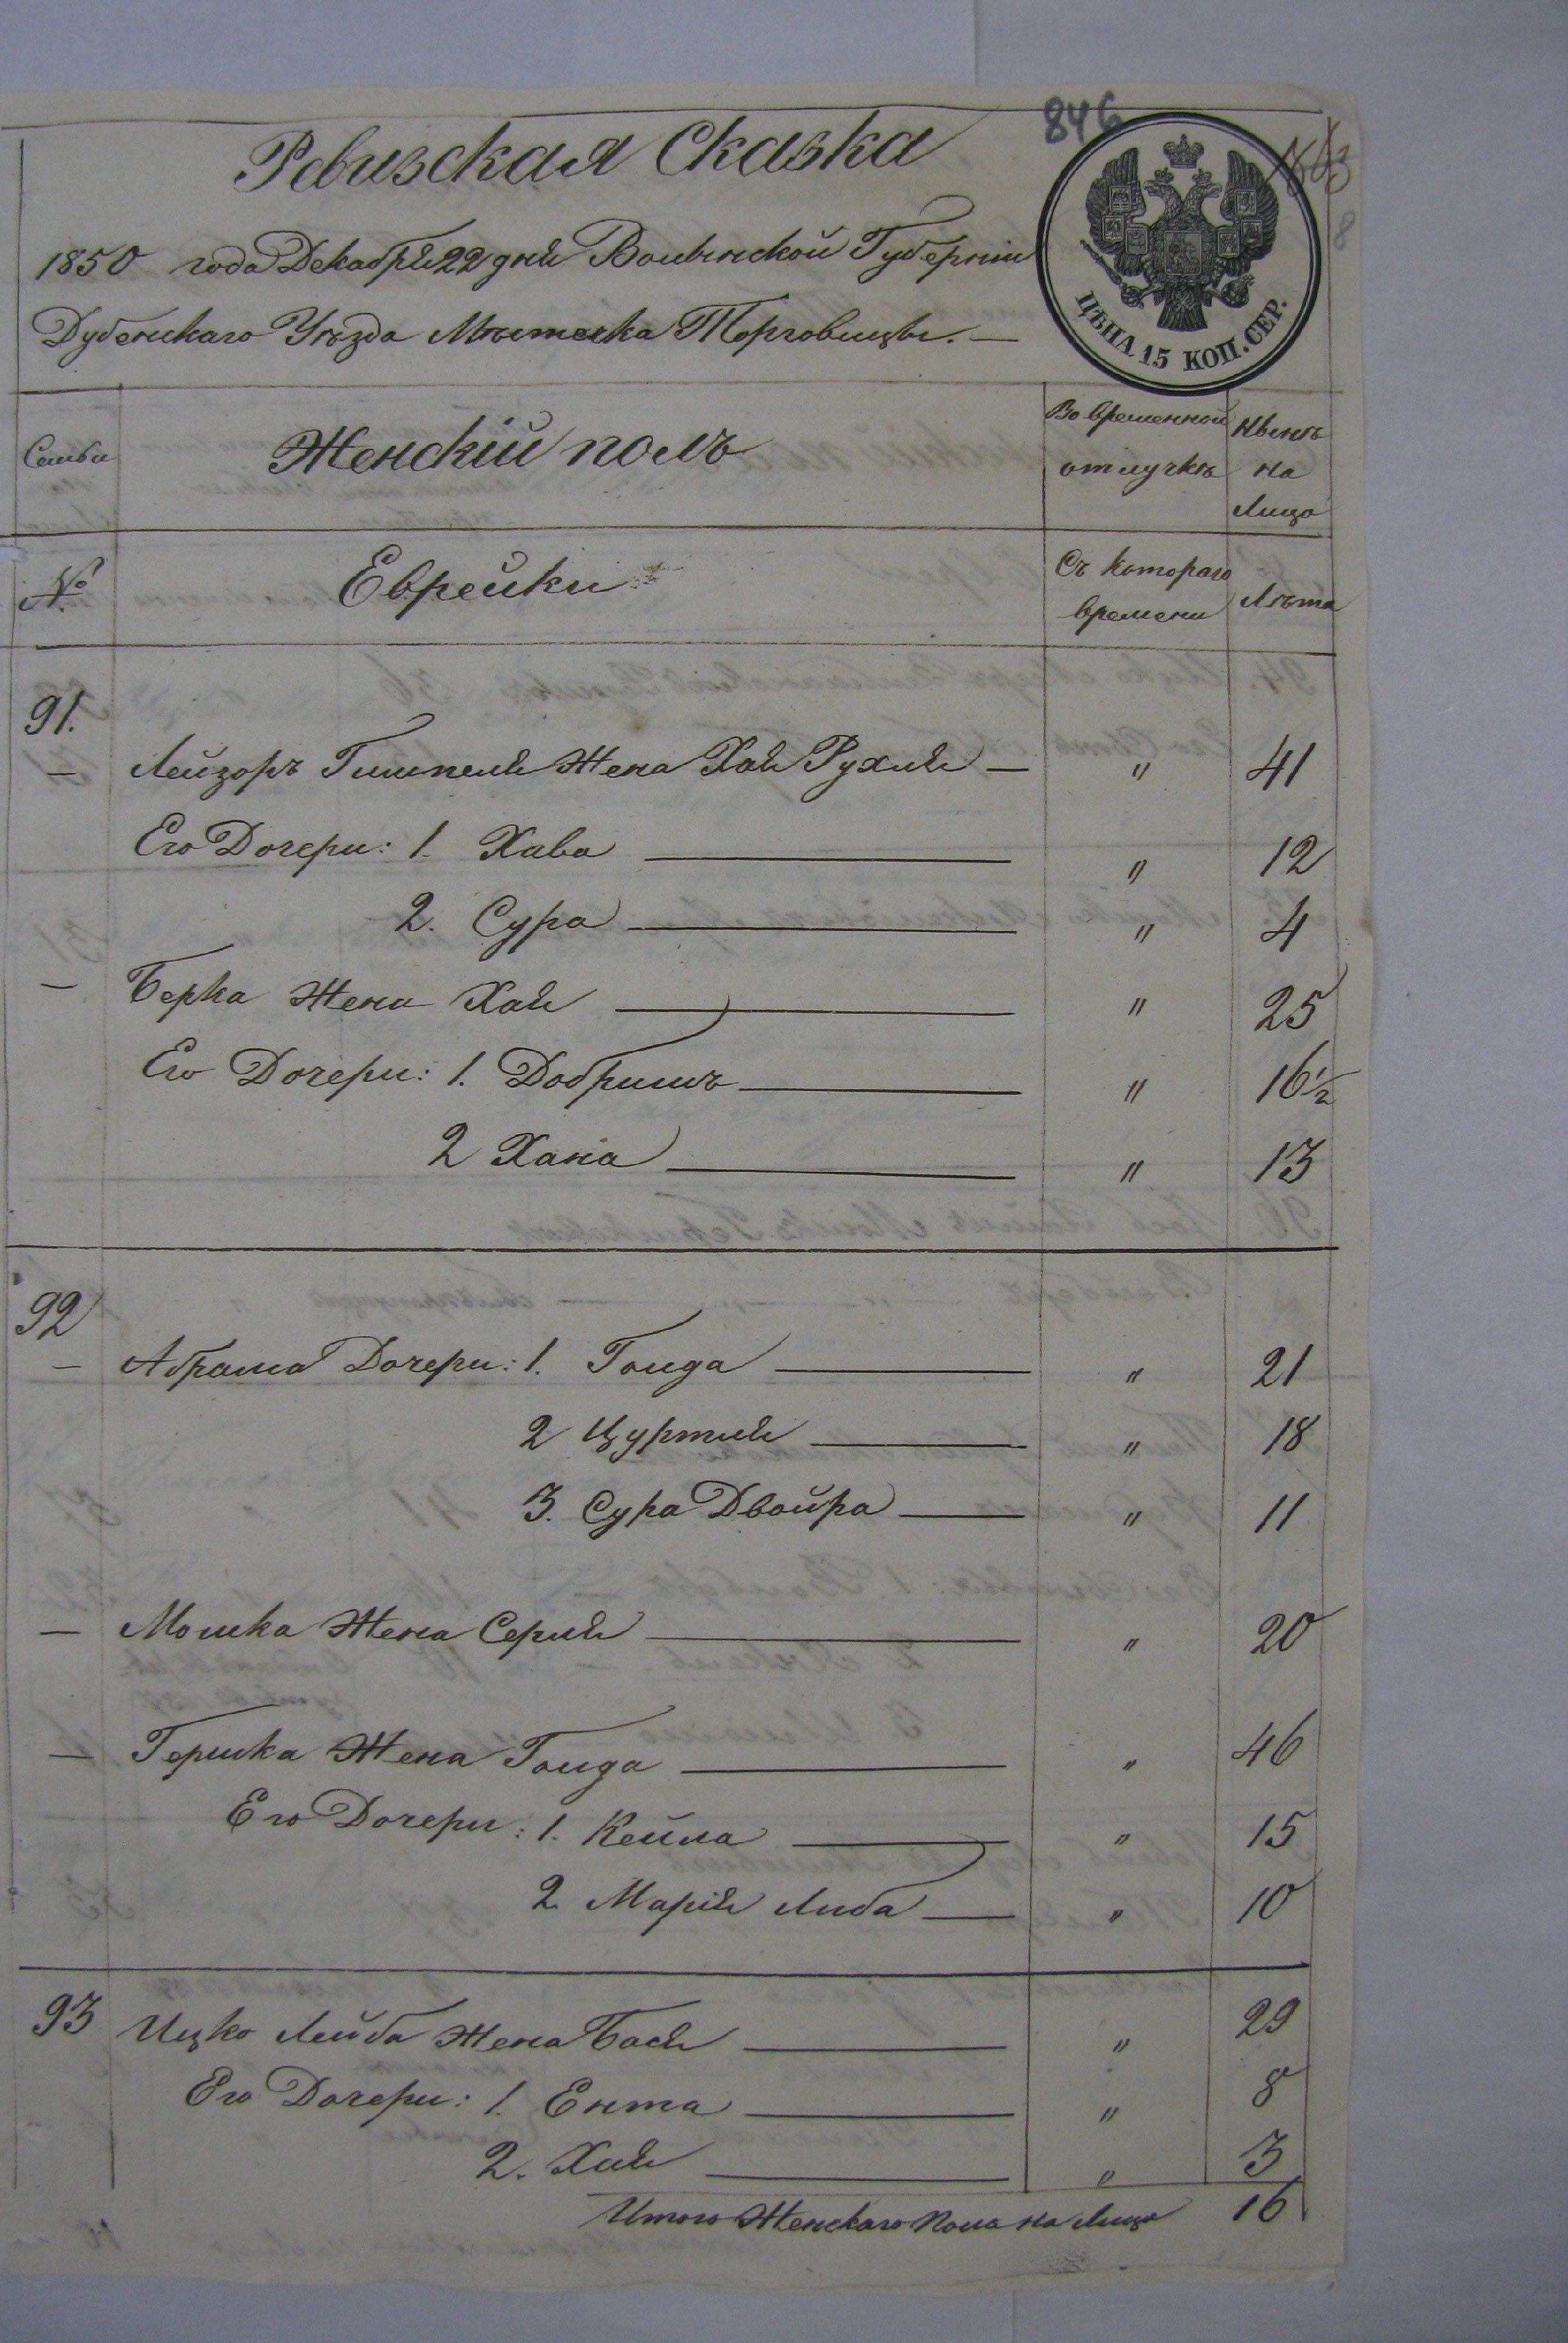 846
Ревизская Сказка
1850 года Декабря 22 дня Волынской Губернiи
Дубенскаго Уѣзда Мѣстечка Торговицы.
ЦѢНА 15 КОП. СЕР.
Семьи
Женскiй полъ
Во временной отлучкѣ
Нынѣ на Лицо
№
Еврейки
Съ котораго времени
Лѣта
91.
— Лейзоръ Гимпеля Жена Хая Рухля — " 41
Его Дочери: 1. Хава " 12
2. Сура " 4
— Берка Жена Хая " 25
Его Дочери: 1. Добришъ " 16½
2 Хана " 13
92
— Абрама Дочери: 1. Голда " 21
2 Цуртля " 18
3. Сура Двойра " 11
— Мошка Жена Серля " 20
— Гершка Жена Голда " 46
Его Дочери: 1. Кейла " 15
2. Марiя Либа " 10
93 Ицко Лейба Жена Бася " 29
Его Дочери: 1. Ента " 8
2. Хая " 3
Итого Женскаго Пола на Лицо 16